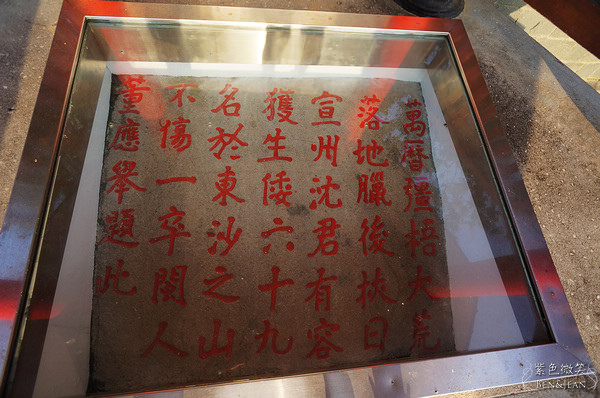 萬曆彊梧大荒
落地臘後挾日
宣州沈君有容
獲生倭六十九
名於東沙之山
不傷一卒閩人
董應舉題此
紫色微笑
BEN&JEAN